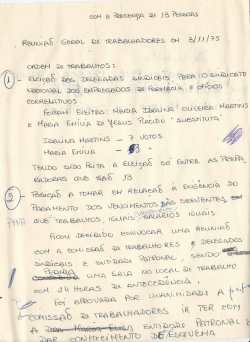 COM A PRESENÇA DE 13 PESSOAS
REUNIÃO GERAL DE TRABALHADORES EM 3/11/75
ORDEM DE TRABALHOS:
1 - ELEIÇÃO DOS DELEGADOS SINDICAIS PARA O SINDICATO
NACIONAL DOS EMPREGADOS DE E OFÍCIOS
CORRELATIVOS
FORAM ELEITAS: MARIA IDALINA OLIVEIRA MARTINS
E MARIA EMÍLIA DE JESUS PLÁCIDO "SUBSTITUTA"
IDALINA MARTINS - 7 VOTOS
MARIA EMÍLIA - 3 "
TENDO SIDO FEITA A ELEIÇÃO SÓ ENTRE AS
QUE SÃO 13
2 - POSIÇÃO A TOMAR EM RELAÇÃO À EXIGÊNCIA DO
PAGAMENTO DOS VENCIMENTOS
QUE TRABALHOS IGUAIS SALÁRIOS IGUAIS.
FICOU DECIDIDO CONVOCAR UMA REUNIÃO
COM A COMISSÃO DE TRABALHADORES E DELEGADOS
SINDICAIS E ENTIDADE PATRONAL, SENDO
UMA SALA NO LOCAL DE TRABALHO
COM 24 HORAS DE ANTECEDÊNCIA.
FOI APROVADA POR UNANIMIDADE A
COMISSÃO DE TRABALHADORES IR TER COM
A ENTIDADE PATRONAL
DAR CONHECIMENTO DO ESQUEMA